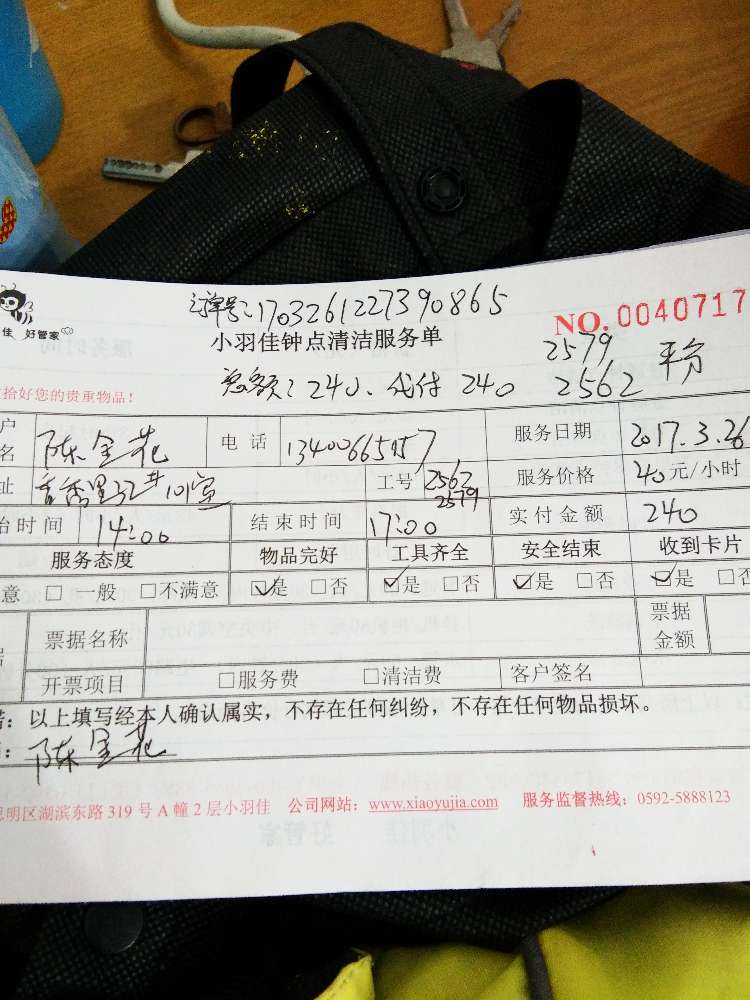 订单号:1703261227390865
NO. 0040717
佳 好管家
小羽佳钟点清洁服务单
2579
平分
拾好您的贵重物品!
总额:240、代付240 2562
户
名 陈金花 电 话 服务日期 2017.3.26
址 工号 2562 服务价格 40元/小时
2579
始时间 14:00 结束时间 17:00 实付金额 240
服务态度 物品完好 工具齐全 安全结束 收到卡片
意 □ 一般 □不满意 ☑是 □否 ☑是 □否 ☑是 □否 ☑是 □否
票据名称 票据
金额
开票项目 □服务费 □清洁费 客户签名
:以上填写经本人确认属实,不存在任何纠纷,不存在任何物品损坏。
:陈金花
思明区湖滨东路 319 号 A 幢 2 层小羽佳 公司网站:www.xiaoyujia.com 服务监督热线:0592-5888123